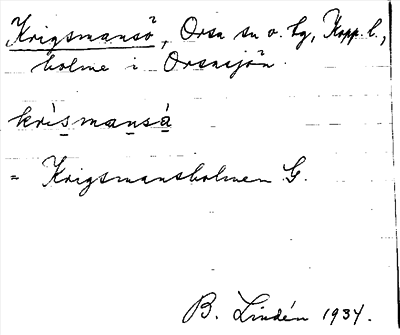 Krigsmansö, Orsa sn o. tg, Kopp. l.,
holme i Orsasjön.
krìsmansá̱
= Krigsmansholmen G.
B. Lindén 1934.